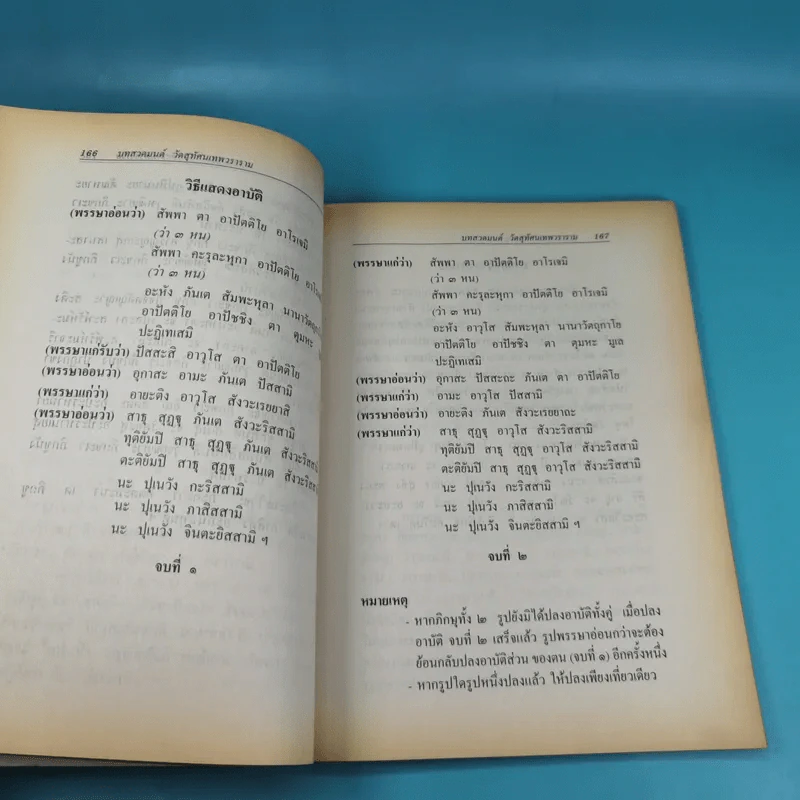 166 บทสวดมนต์ วัดสุทัศนเทพวราราม
วิธีแสดงอาบัติ
(พรรษาอ่อนว่า) สัพพา ตา อาปัตติโย อาโรเจมิ
(ว่า ๓ หน)
สัพพา คะรุละหุกา อาปัตติโย อาโรเจมิ
(ว่า ๓ หน)
อะหัง ภันเต สัมพะหุลา นานาวัตถุกาโย
อาปัตติโย อาปัชชิง ตา ตุมหะ มูเล
ปะฏิเทเสมิ
(พรรษาแก่รับว่า) ปัสสะสิ อาวุโส ตา อาปัตติโย
(พรรษาอ่อนว่า) อุกาสะ อามะ ภันเต ปัสสามิ
(พรรษาแก่ว่า) อายะติง อาวุโส สังวะเรยยาสิ
(พรรษาอ่อนว่า) สาธุ สุฏฐุ ภันเต สังวะริสสามิ
ทุติยัมปิ สาธุ สุฏฐุ ภันเต สังวะริสสามิ
ตะติยัมปิ สาธุ สุฏฐุ ภันเต สังวะริสสามิ
นะ ปุเนวัง กะริสสามิ
นะ ปุเนวัง ภาสิสสามิ
นะ ปุเนวัง จินตะยิสสามิ ฯ
จบที่ ๑
บทสวดมนต์ วัดสุทัศนเทพวราราม 167
(พรรษาแก่ว่า) สัพพา ตา อาปัตติโย อาโรเจมิ
(ว่า ๓ หน)
สัพพา คะรุละหุกา อาปัตติโย อาโรเจมิ
(ว่า ๓ หน)
อะหัง อาวุโส สัมพะหุลา นานาวัตถุกาโย
อาปัตติโย อาปัชชิง ตา ตุมหะ มูเล
ปะฏิเทเสมิ
(พรรษาอ่อนว่า) อุกาสะ ปัสสะถะ ภันเต ตา อาปัตติโย
(พรรษาแก่ว่า) อามะ อาวุโส ปัสสามิ
(พรรษาอ่อนว่า) อายะติง ภันเต สังวะเรยยาถะ
(พรรษาแก่ว่า) สาธุ สุฏฐุ อาวุโส สังวะริสสามิ
ทุติยัมปิ สาธุ สุฏฐุ อาวุโส สังวะริสสามิ
ตะติยัมปิ สาธุ สุฏฐุ อาวุโส สังวะริสสามิ
นะ ปุเนวัง กะริสสามิ
นะ ปุเนวัง ภาสิสสามิ
นะ ปุเนวัง จินตะยิสสามิ ฯ
จบที่ ๒
หมายเหตุ
- หากภิกษุทั้ง ๒ รูปยังมิได้ปลงอาบัติทั้งคู่ เมื่อปลง
อาบัติ จบที่ ๒ เสร็จแล้ว รูปพรรษาอ่อนกว่าจะต้อง
ย้อนกลับปลงอาบัติส่วน ของตน (จบที่ ๑) อีกครั้งหนึ่ง
- หากรูปใดรูปหนึ่งปลงแล้ว ให้ปลงเพียงเที่ยวเดียว